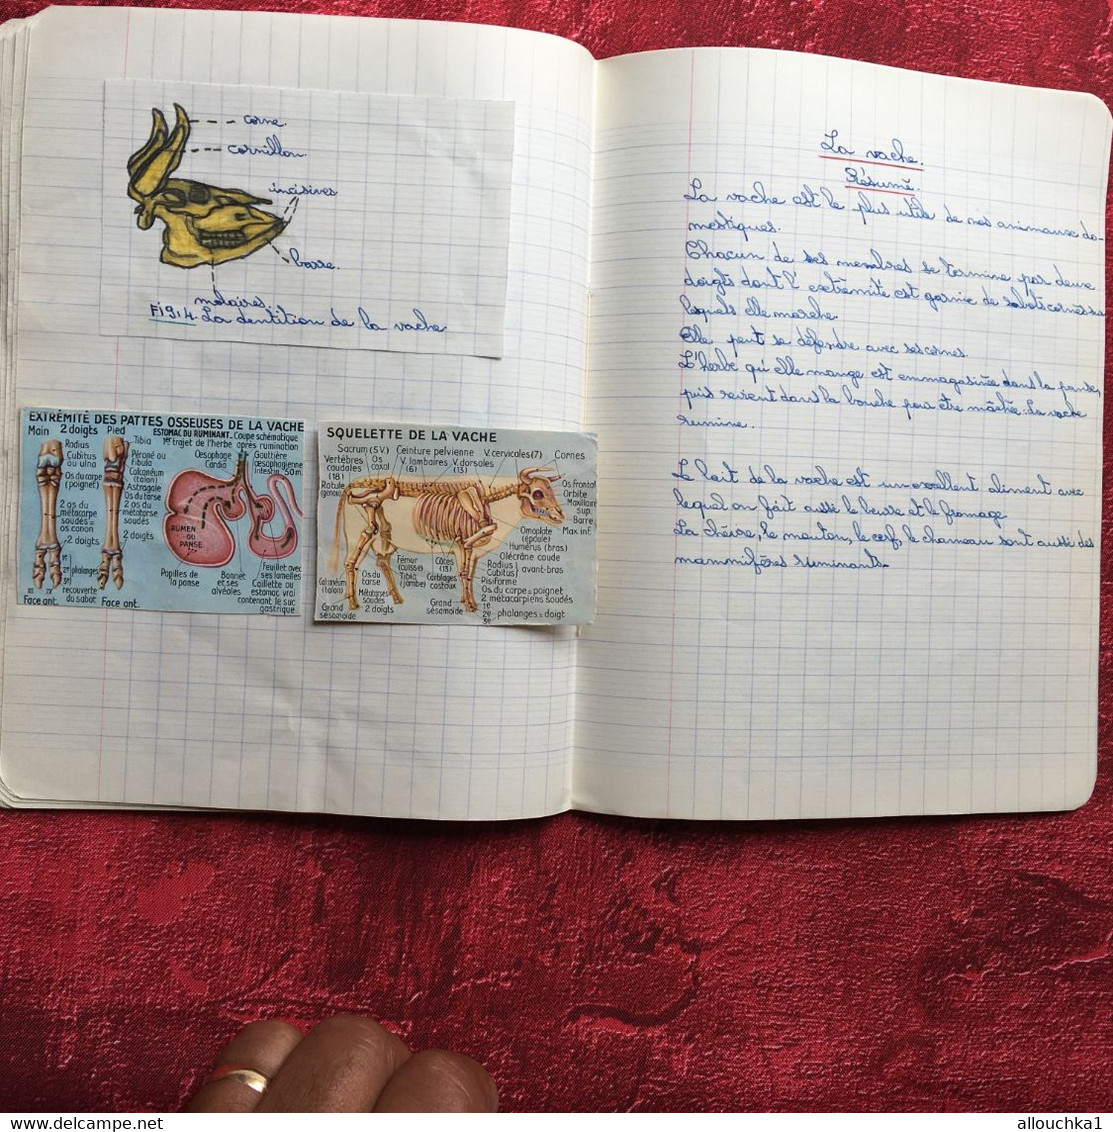 corne
cornillon
incisives
barre.
molaires
Fig:4. La dentition de la vache
EXTRÉMITÉ DES PATTES OSSEUSES DE LA VACHE
Main 2 doigts Pied
Radius
Cubitus ou ulna
Os du carpe (poignet)
2 os du métacarpe soudés = os canon
2 doigts
1re
2e phalanges
3e
recouverte du sabot
III IV
Face ant.
Face ant.
Tibia
Péroné ou Fibula
Calcanéum (talon)
Astragale
Os du tarse
2 os du métatarse soudés
2 doigts
ESTOMAC DU RUMINANT. Coupe schématique
1er trajet de l'herbe après rumination
Oesophage
Cardia
Gouttière œsophagienne
Intestin 50 m.
RUMEN OU PANSE
Papilles de la panse
Bonnet et ses alvéoles
Feuillet avec ses lamelles
Caillette ou estomac vrai contenant le suc gastrique
SQUELETTE DE LA VACHE
Sacrum (5 V.) Ceinture pelvienne V. cervicales (7) Cornes
Vertèbres caudales (18)
Os coxal
V. lombaires (6)
V. dorsales (13)
Rotule (genou)
Os frontal
Orbite
Maxillaire sup.
Barre
Max inf.
Omoplate (épaule)
Humérus (bras)
Olécrâne coude
Radius
Cubitus
avant-bras
Pisiforme
Os du carpe = poignet
2 métacarpiens soudés
1e
2e phalanges = doigt
3e
Fémur (cuisse)
Tibia (jambe)
Côtes (13)
Cartilages costaux
Calcanéum (talon)
Os du tarse
Métatarses soudés
2 doigts
Grand sésamoïde
Grand sésamoïde
La vache.
Résumé.
La vache est le plus utile de nos animaux do-
mestiques.
Chacun de ses membres se termine par deux
doigts dont l'extrémité est garnie de sabots cornés sur
lesquels elle marche.
Elle peut se défendre avec ses cornes.
L'herbe qu'elle mange est emmagasinée dans la panse,
puis revient dans la bouche pour être mâchée. La vache
rumine.
Le lait de la vache est un excellent aliment avec
lequel on fait aussi le beurre et le fromage.
La chèvre, le mouton, le cerf, le chameau sont aussi des
mammifères ruminants.
Delcampe.net
allouchka1